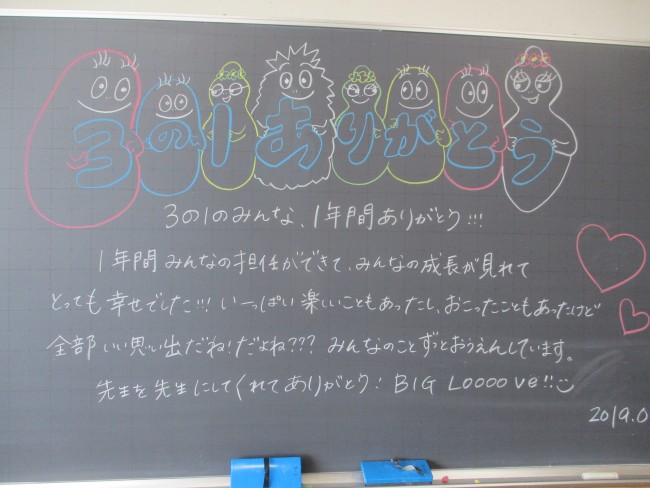 3の1ありがとう
3の1のみんな、1年間ありがとう!!!
1年間みんなの担任ができて、みんなの成長が見れて
とっても幸せでした!!! いっぱい楽しいこともあったし、おこったこともあったけど
全部いい思い出だね!だよね??? みんなのことずっとおうえんしています。
先生を先生にしてくれてありがとう! BIG LOOOOVe!!
2019.0